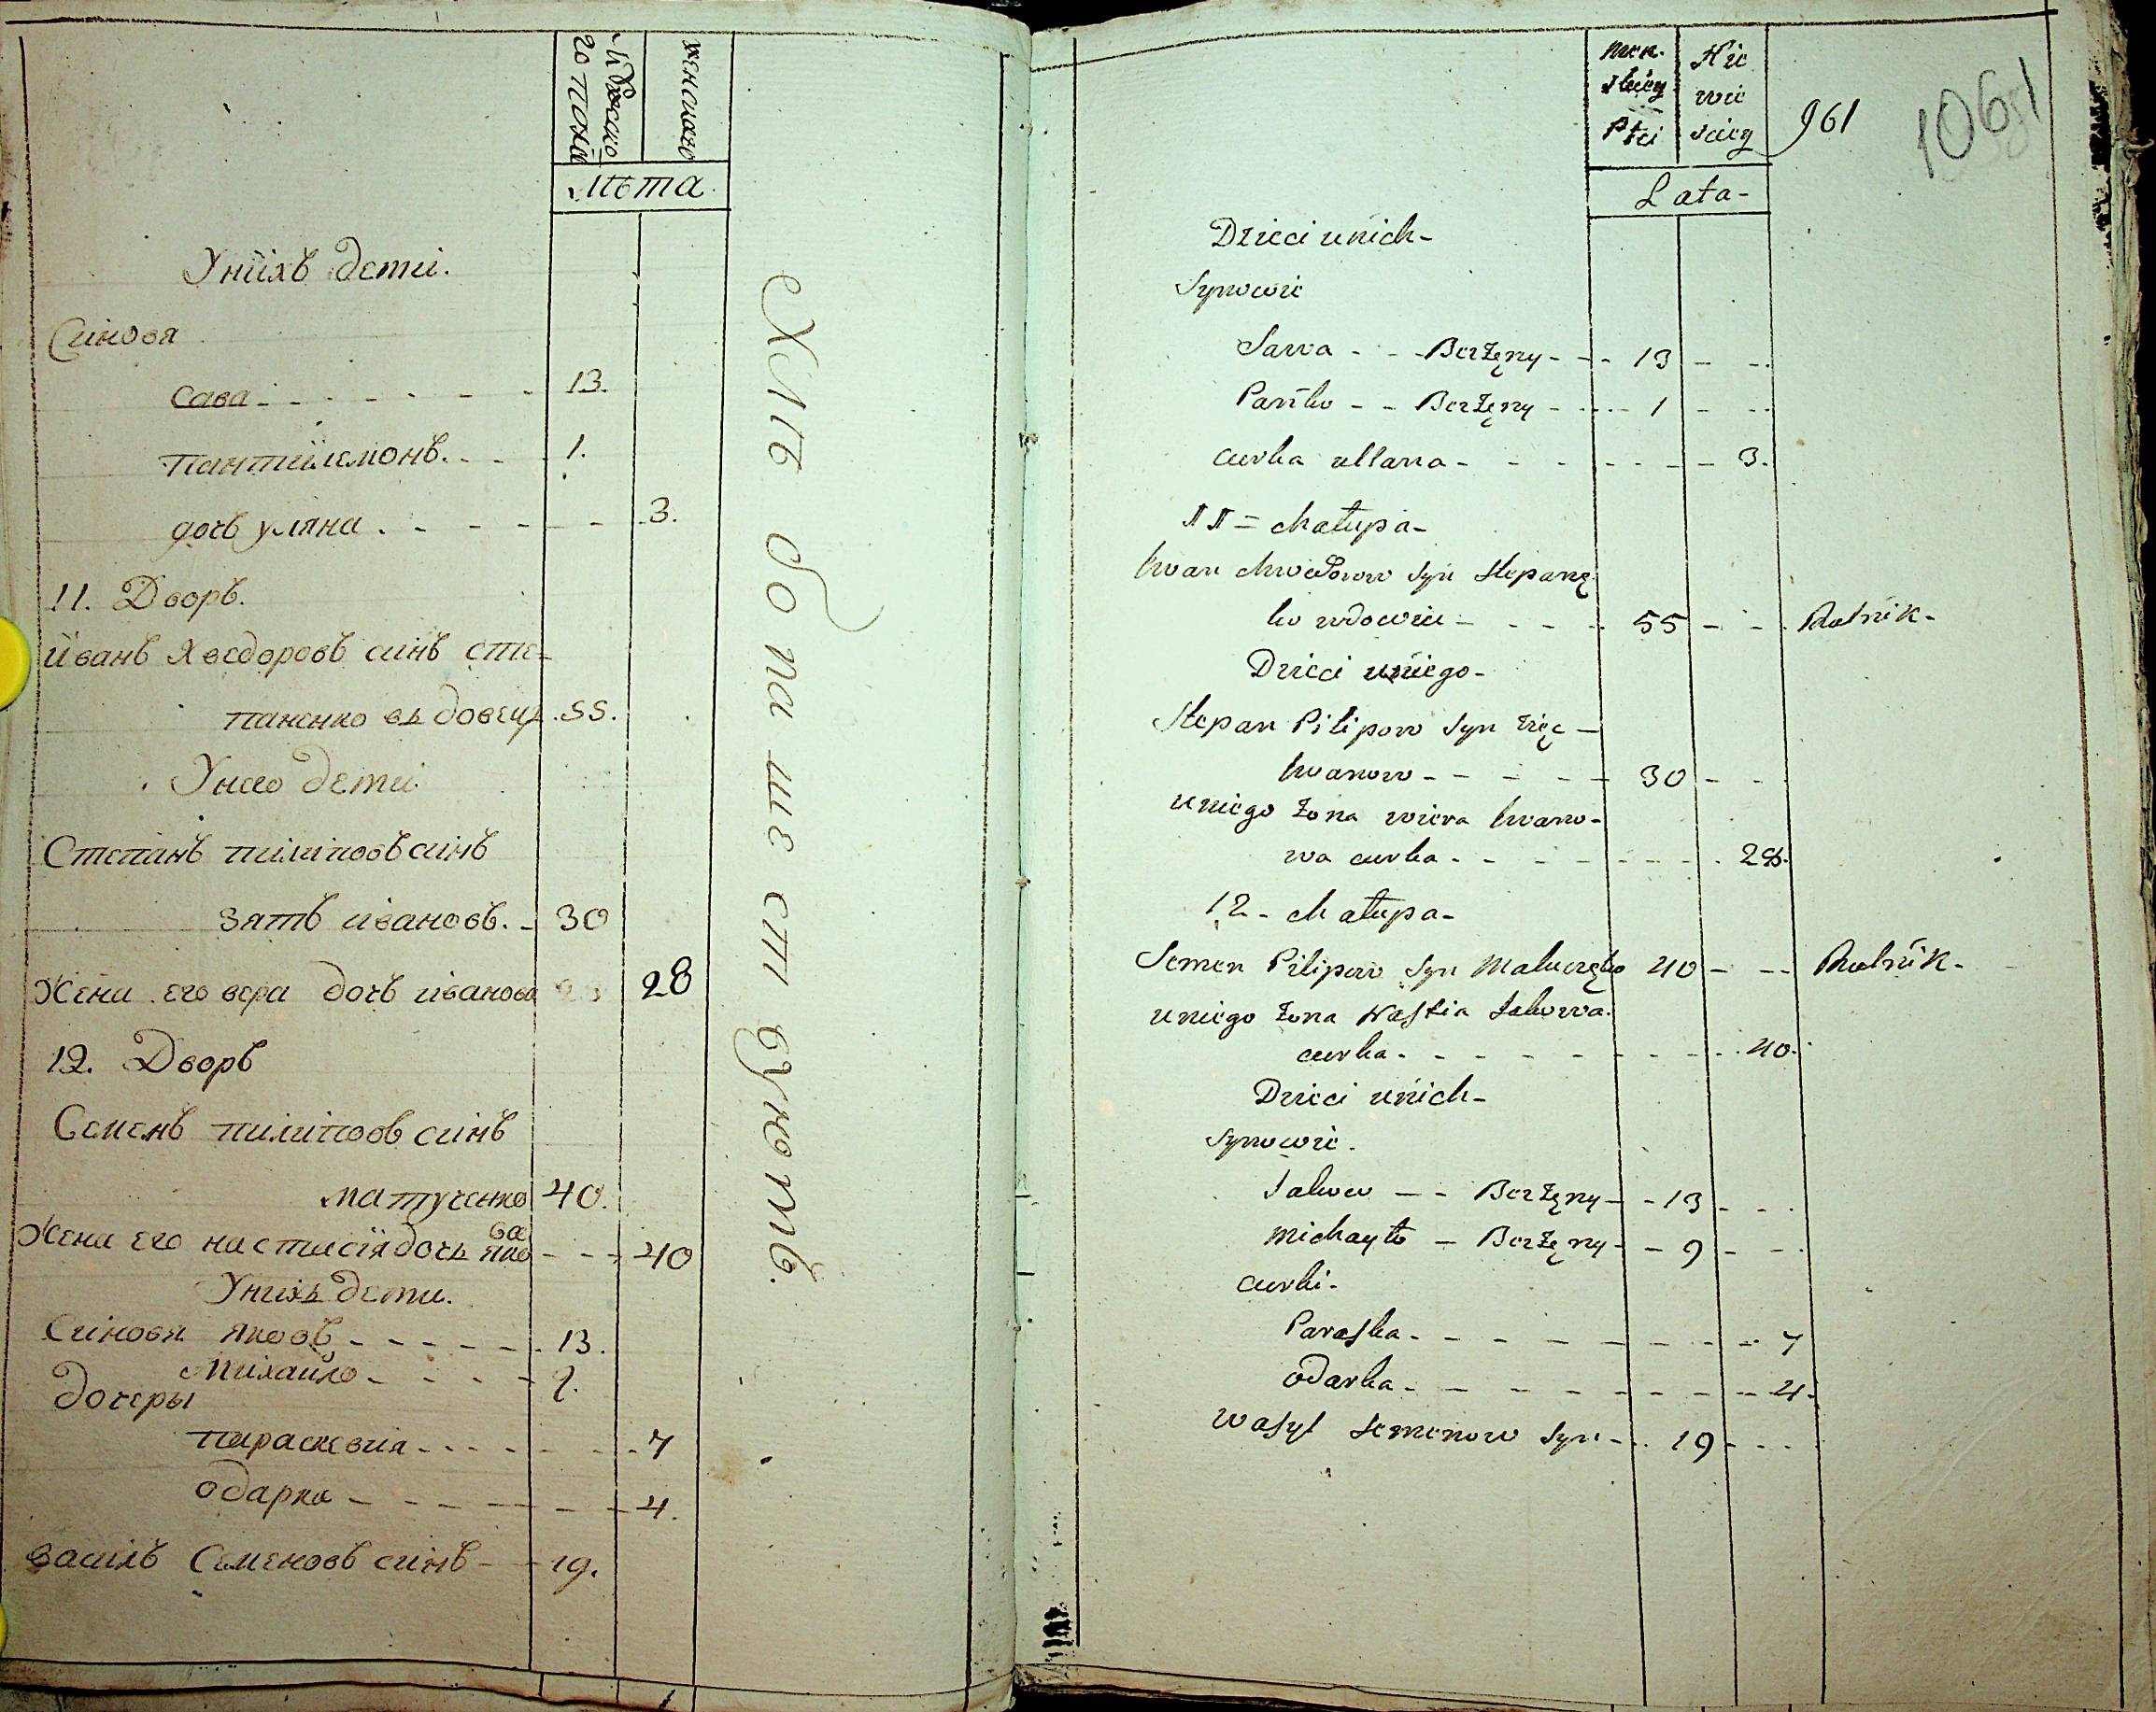 Мужеско
го пола
женскаго
Лѣта.
У ниіхъ дети.
Сіиновя
Сава - - - - - - 13.
пантиілемонъ. - - - 1.
дочъ уляна . - - - - - 3.
11. Дворъ.
иванъ Хведоровъ сиінъ сте-
паненко вьдовець . 55.
У нево дети
Степанъ пиліиповъ сиінъ
зять ивановъ. - 30
Жена его вера дочъ иванова 28
12. Дворъ
Семенъ пилиіповъ сиінъ
матученко 40.
Жена его настасиія дочь яко
ва - - - 40
У нихь дети.
Сиіновя яковъ - - - - - - 13.
Михаийло - - - - 9.
дочеры
параскевиія - - - - - - - 7
одарка - - - - - - - 4.
василъ Семеновъ сиінъ - - 19.
Хлѣбопашествуютъ.
męz-
skiey
Płci
Nie
wie
sciey
961
1061
Lata -
Dzieci u nich -
Synowie
Sawa - - - Berżęny - - - 13 - - -.
Pańko - - Berżęny - - - - 1 - - -
curka ullana - - - - - - - - 3.
11 = chałupa -
Iwan chwedorow syn Stepanę
ko wdowiec - - - - 55 - - - Rolnik -
Dzieci u niego -
Stepan Pilipow syn zięc -
Iwanow - - - - - 30 - - -
u niego żona wiera Iwano -
wa curka - - - - - - - - . 28.
12 - chałupa -
Semen Pilipow syn Matuczęko 40 - - - Rolnik -
u niego żona Nastia Jakowa.
curka - - - - - - - - - . 40.
Dzieci u nich -
Synowie .
Jakow - - Berżęny - - 13 - - -
Michayło - Berżęny - - 9 - - -.
curki -
Paraska - - - - - - - - - 7
odarka - - - - - - - - - 4.
wasyl semenow syn - . . 19 - - -